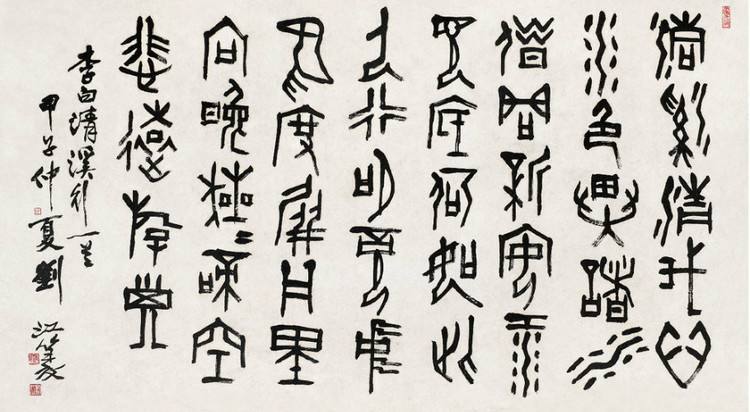 清溪清我心
水色異諸水
借問新安江
見底何如此
人行明鏡中
鳥度屏風里
向晚猩猩啼空
悲遠遊子
李白清溪行一首
甲子仲夏劉江篆